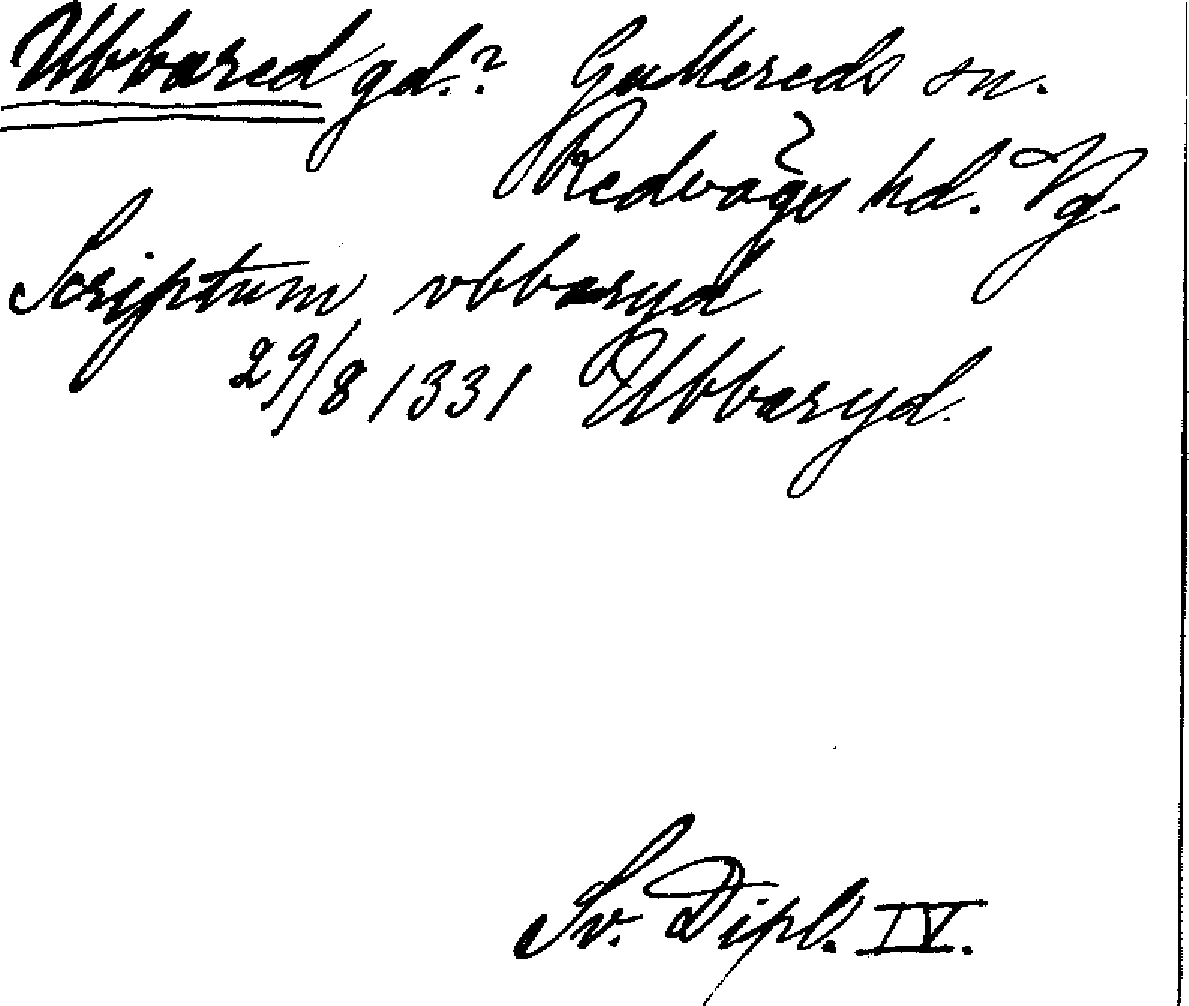 Ubbared gd.? Gullereds sn.
Redvägs hd. Vg.
Scriptum vbbaryd
29/8 1331 Ubbaryd.
Sv. Dipl. IV.